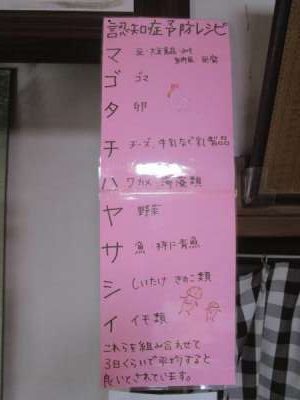 認知症予防レシピ
マ 豆・大豆食品・みそ
納豆 豆腐
ゴ ゴマ
タ 卵
チ チーズ、牛乳など乳製品
ハ ワカメ 海藻類
ヤ 野菜
サ 魚 特に青魚
シ しいたけ きのこ類
イ イモ類
これらを組み合わせて
3日くらいで平均すると
良いとされています。